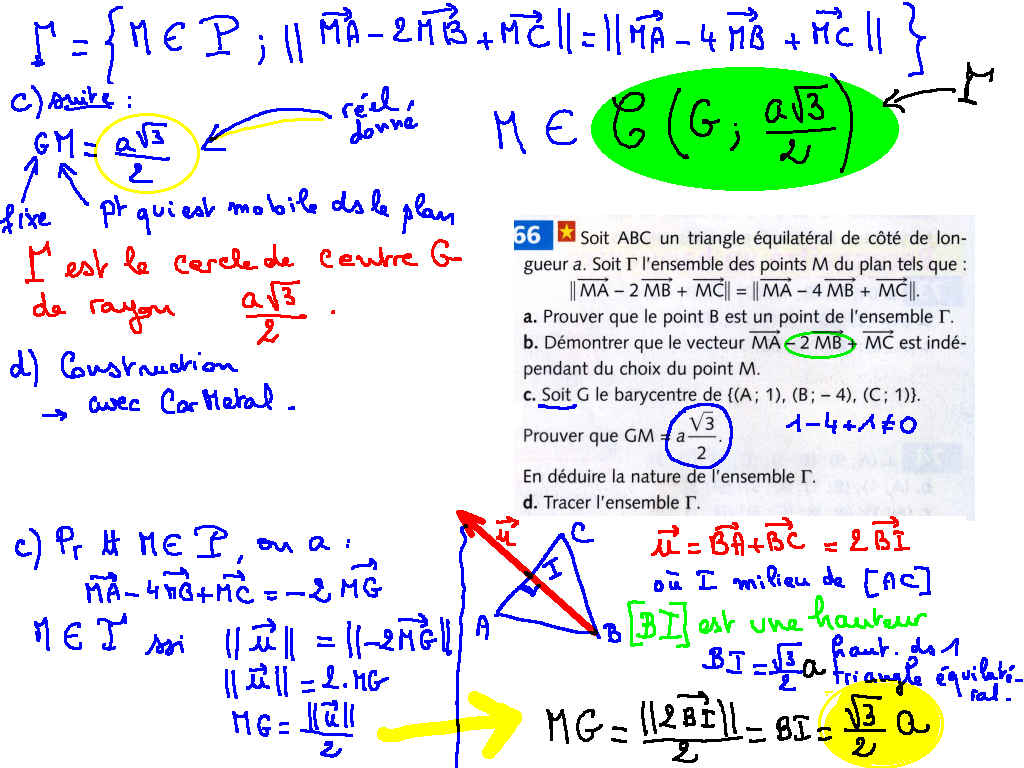 Γ = { M ∈ P ; || MA⃗ - 2MB⃗ + MC⃗ || = || MA⃗ - 4 MB⃗ + MC⃗ || }
c) suite :
GM = a√3/2
réel donné
fixe
pt qui est mobile ds le plan
Γ est le cercle de centre G
de rayon a√3/2 .
d) Construction
→ avec CarMetal .
M ∈ C ( G ; a√3/2 )
Γ
66 ★ Soit ABC un triangle équilatéral de côté de lon-
gueur a. Soit Γ l'ensemble des points M du plan tels que :
||MA⃗ − 2 MB⃗ + MC⃗|| = ||MA⃗ − 4 MB⃗ + MC⃗||.
a. Prouver que le point B est un point de l'ensemble Γ.
b. Démontrer que le vecteur MA⃗ − 2 MB⃗ + MC⃗ est indé-
pendant du choix du point M.
c. Soit G le barycentre de {(A ; 1), (B ; − 4), (C ; 1)}.
1-4+1≠0
Prouver que GM = a √3/2.
En déduire la nature de l'ensemble Γ.
d. Tracer l'ensemble Γ.
c) Pr tt M ∈ P, on a :
MA⃗ - 4MB⃗ + MC⃗ = -2 MG⃗
M ∈ Γ ssi || u⃗ || = ||-2MG⃗||
|| u⃗ || = 2. MG
MG = ||u⃗||/2
u⃗
C
I
A
B
u⃗ = BA⃗ + BC⃗ = 2 BI⃗
où I milieu de [AC]
[BI] est une hauteur
BI = √3/2 a
haut. ds 1
triangle équilaté-
ral.
MG = ||2BI⃗||/2 = BI = √3/2 a